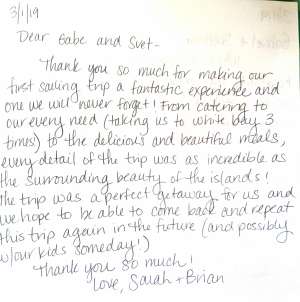 3/1/19
Dear Gabe and Svet-
Thank you so much for making our
first sailing trip a fantastic experience and
one we will never forget! From catering to
our every need (taking us to white bay 3
times) to the delicious and beautiful meals,
every detail of the trip was as incredible as
the surrounding beauty of the islands!
The trip was a perfect getaway for us and
we hope to be able to come back and repeat
this trip again in the future (and possibly
w/our kids someday!)
Thank you so much!
Love, Sarah + Brian